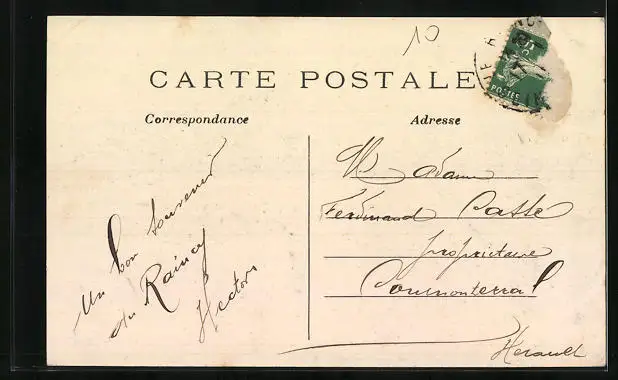 10
CARTE POSTALE
Correspondance
Adresse
POSTES
Un bon souvenir
du Raincy
Hector
Madame
Ferdinand Cassé
propriétaire
Cournonterral
Herault